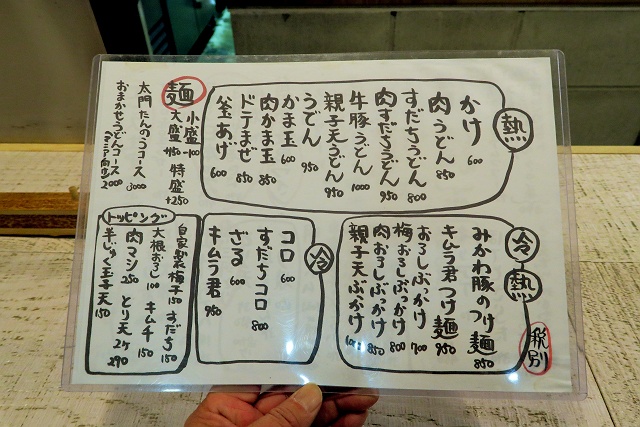 熱
かけ 600
肉うどん 850
すだちうどん 800
肉すだちうどん 950
牛豚うどん 1000
親子天うどん 950
うどん 950
かま玉 600
肉かま玉 850
ドテまぜ 850
釜あげ 600
麺
小盛 -100
大盛 +150
特盛 +250
太門たんのうコース 3000
おまかせうどんコース 2000
冷
熱
みかわ豚のつけ麺 850
キムラ君つけ麺 950
おろしぶっかけ 700
梅おろしぶっかけ 800
肉おろしぶっかけ 850
親子天ぶっかけ
税別
冷
コロ 600
すだちコロ 800
ざる 600
キムラ君 950
トッピング
自家製梅干 150
すだち 150
大根おろし 100
キムチ 150
肉マシ 250
とり天2ケ 290
半じゅく玉子天 150